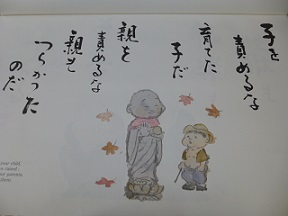 子を
責めるな
育てた
子だ
親を
責めるな
親も
つらかった
のだ